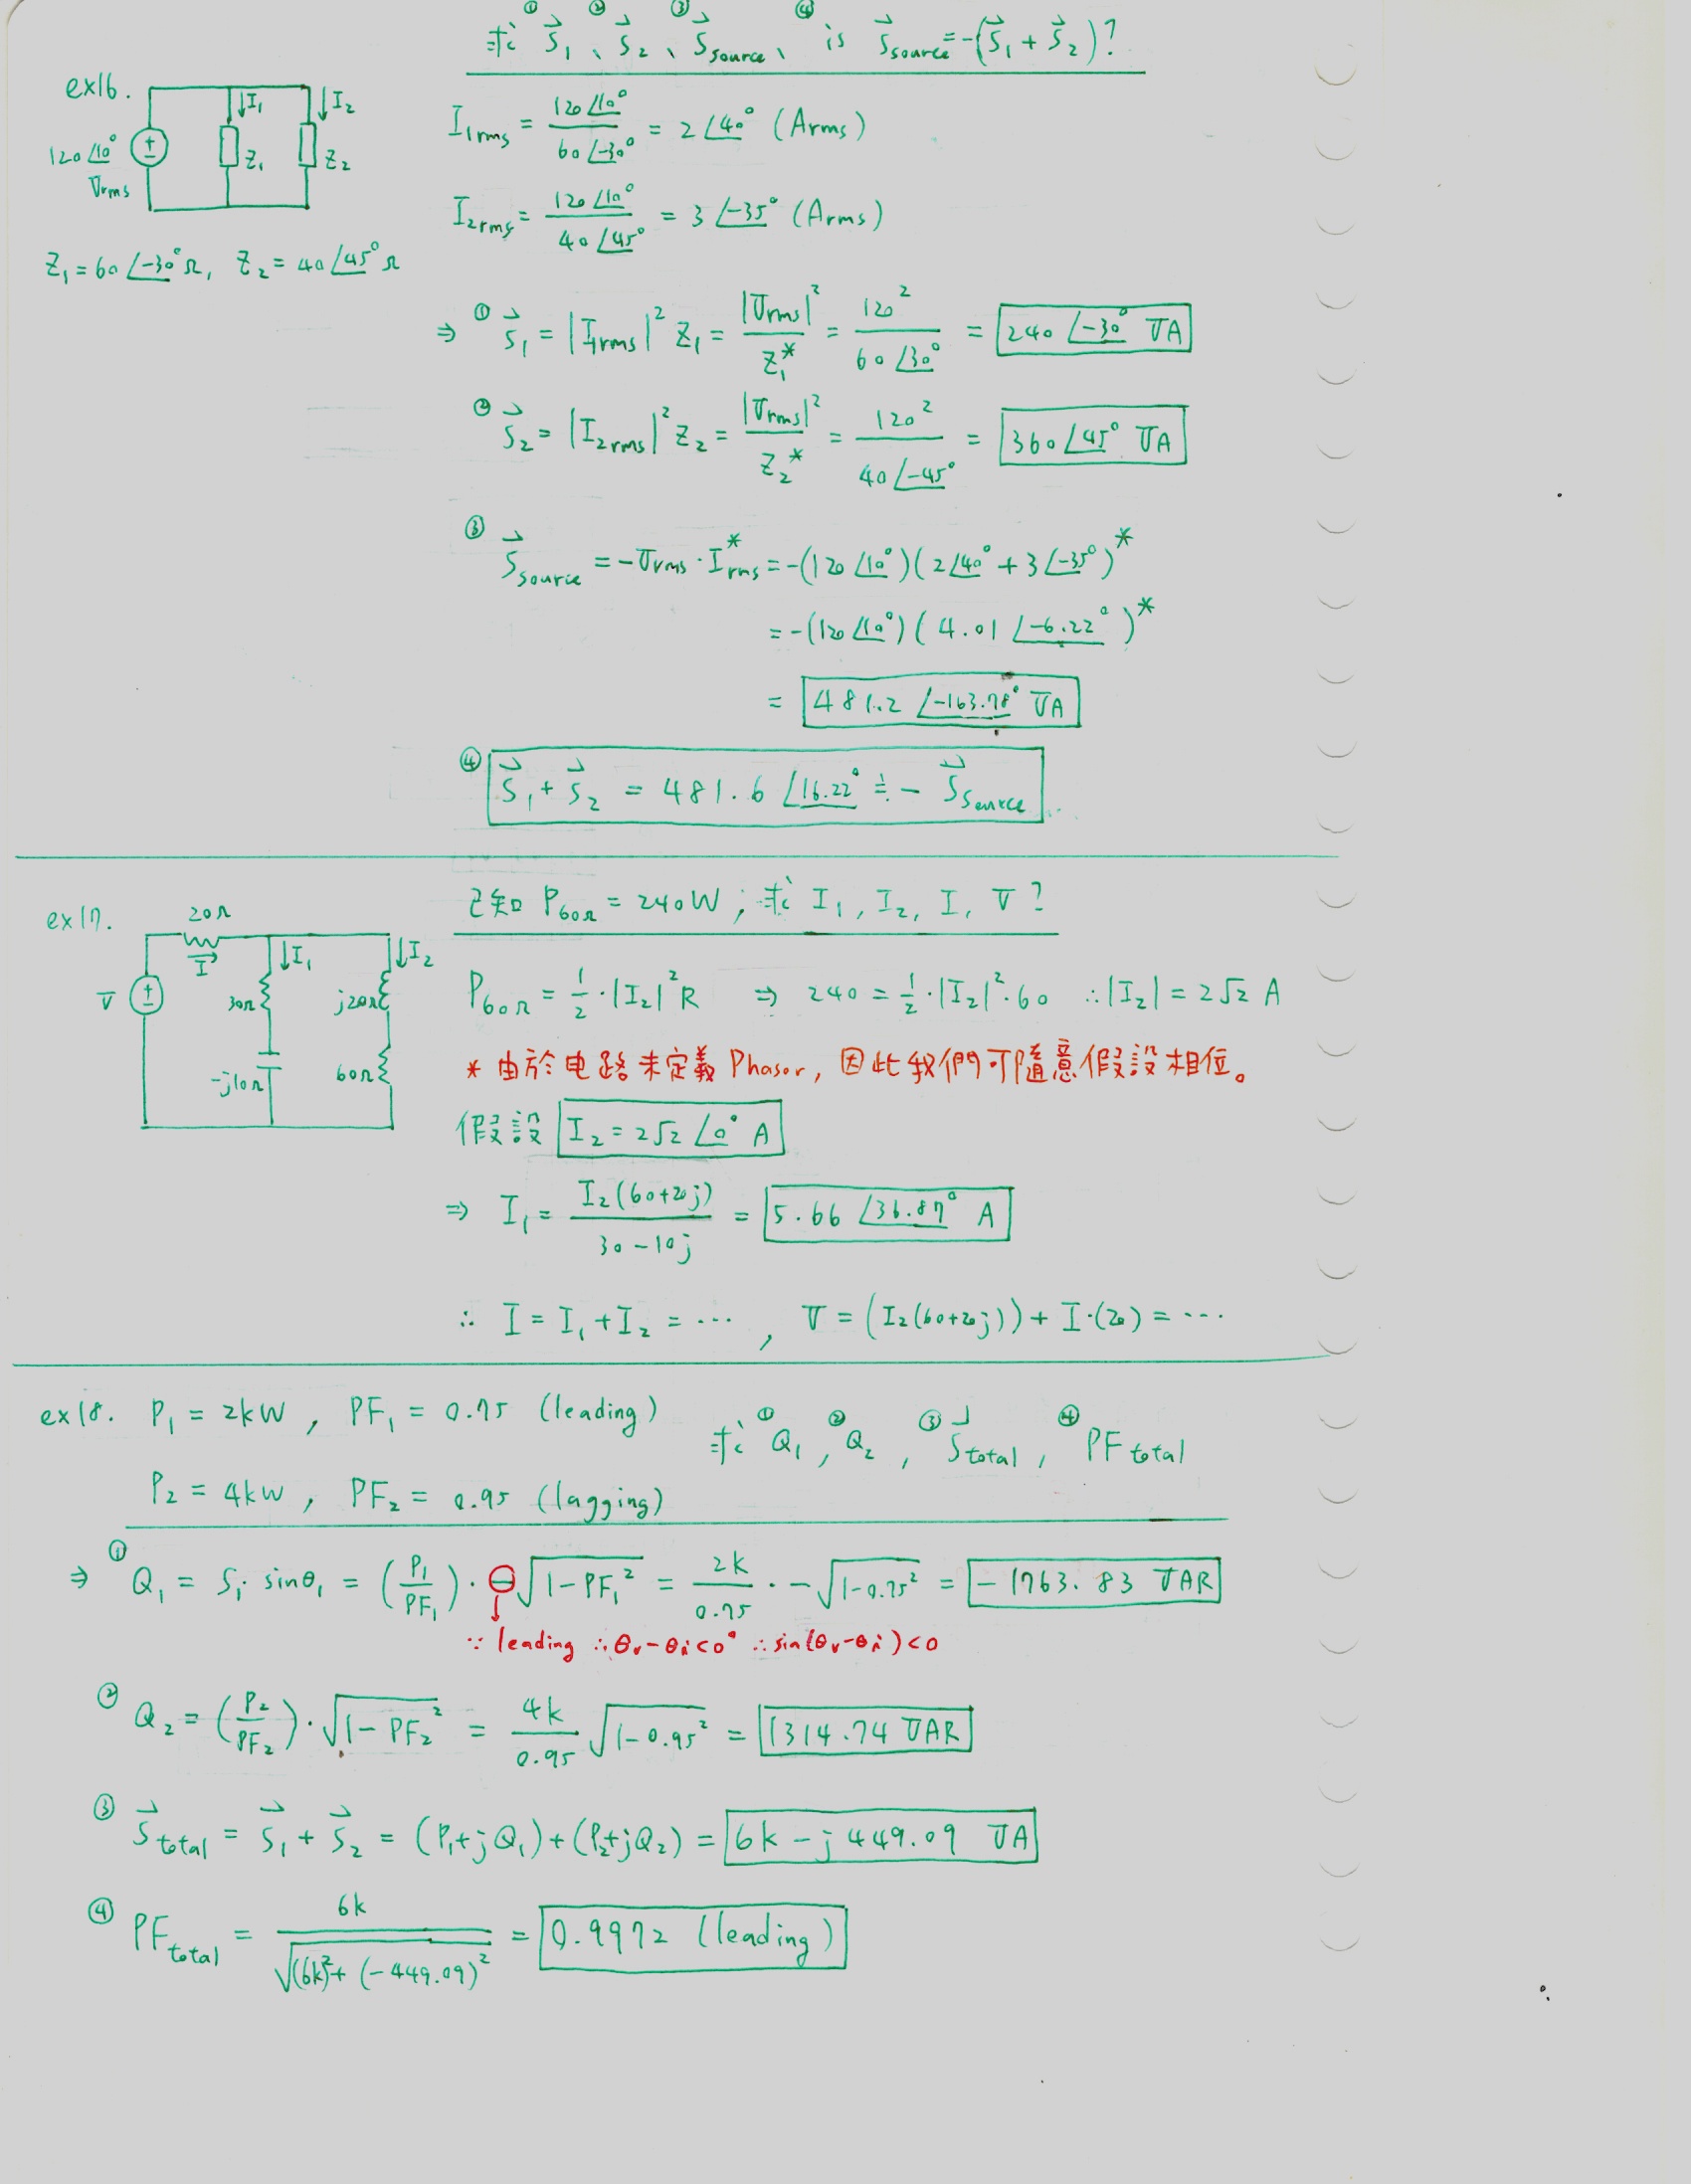 求 ① S⃗₁、② S⃗₂、③ S⃗source、④ is S⃗source = -(S⃗₁ + S⃗₂)?
ex16.
I₁ I₂
120∠10° Vrms
Z₁ Z₂
Z₁ = 60∠-30°Ω, Z₂ = 40∠45°Ω
I₁rms = 120∠10° / 60∠-30° = 2∠40° (Arms)
I₂rms = 120∠10° / 40∠45° = 3∠-35° (Arms)
⇒ ① S⃗₁ = |I₁rms|² Z₁ = |Vrms|² / Z₁* = 120² / 60∠30° = 240∠-30° VA
② S⃗₂ = |I₂rms|² Z₂ = |Vrms|² / Z₂* = 120² / 40∠-45° = 360∠45° VA
③ S⃗source = -Vrms · I*rms = -(120∠10°)(2∠40° + 3∠-35°)*
= -(120∠10°)(4.01∠-6.22°)*
= 481.2∠-163.78° VA
④ S⃗₁ + S⃗₂ = 481.6∠16.22° ≒ - S⃗source
ex17.
已知 P60Ω = 240W ; 求 I₁, I₂, I, V?
20Ω
I I₁ I₂
V 30Ω j20Ω
-j10Ω 60Ω
P60Ω = ½·|I₂|²R ⇒ 240 = ½·|I₂|²·60 ∴|I₂| = 2√2 A
* 由於电路未定義 Phasor, 因此我們可隨意假設相位。
假設 I₂ = 2√2∠0° A
⇒ I₁ = I₂(60+20j) / 30-10j = 5.66∠36.87° A
∴ I = I₁ + I₂ = ⋯ , V = (I₂(60+20j)) + I·(20) = ⋯
ex18. P₁ = 2kW , PF₁ = 0.75 (leading)
P₂ = 4kW , PF₂ = 0.95 (lagging)
求 ① Q₁ , ② Q₂ , ③ S⃗total , ④ PFtotal
⇒ ① Q₁ = S₁ sinθ₁ = (P₁/PF₁) · ⊖√(1-PF₁²) = 2k/0.75 · -√(1-0.75²) = -1763.83 VAR
∵ leading ∴θv-θi<0° ∴sin(θv-θi)<0
② Q₂ = (P₂/PF₂) · √(1-PF₂²) = 4k/0.95 √(1-0.95²) = 1314.74 VAR
③ S⃗total = S⃗₁ + S⃗₂ = (P₁+jQ₁)+(P₂+jQ₂) = 6k - j449.09 VA
④ PFtotal = 6k / √((6k)²+(-449.09)²) = 0.9972 (leading)